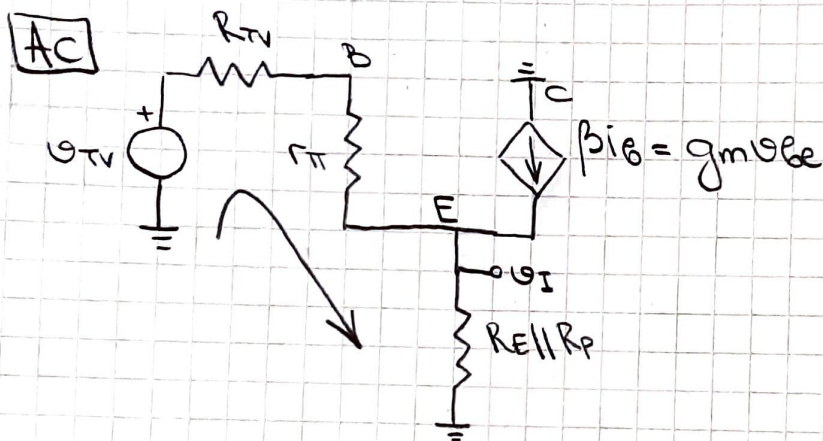 AC
RTV
B
C
+
υTV
rπ
βiB = gmυbe
E
υI
RE||RP